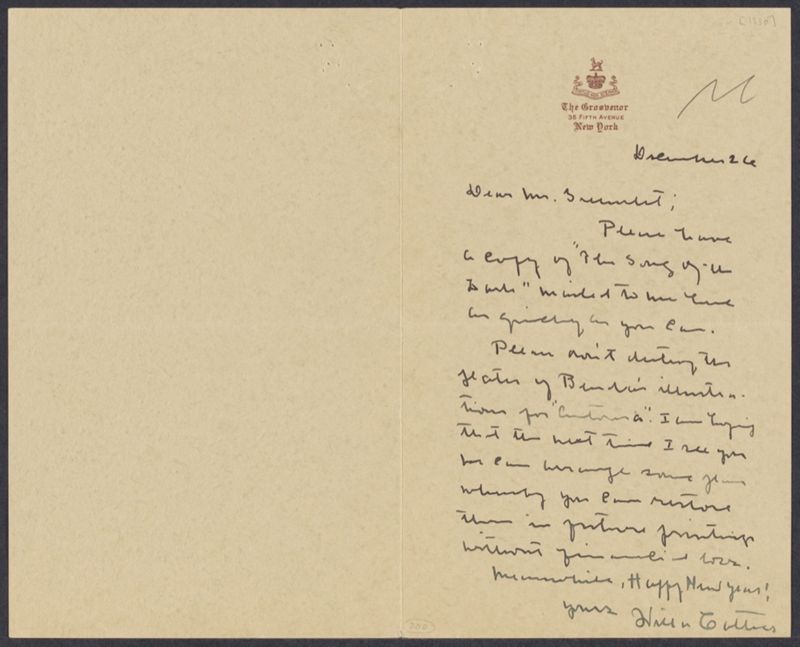 [1930]
The Grosvenor
35 Fifth Avenue
New York
December 26
Dear Mr. Greenslet;
Please have
a copy of "The Song of the
Lark" mailed to me here
as quickly as you can.
Please don't destroy the
plates of Benda's illustra-
tions for "Antonia". I am hoping
that the next time I see you
we can arrange some plan
whereby you can restore
them in future printings
without financial loss.
Meanwhile, Happy New Year!
Yours Willa Cather